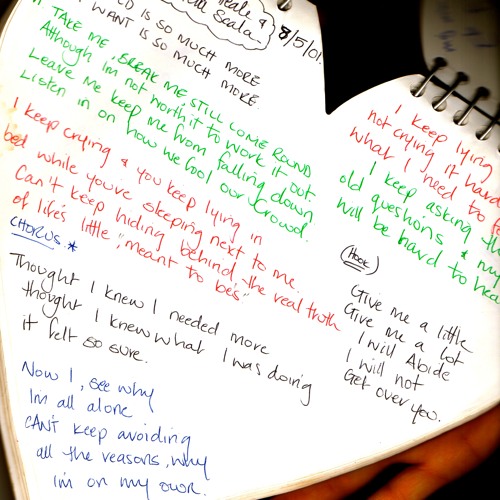 Scala.
8/5/01.
IS SO MUCH MORE
I WANT IS SO MUCH MORE.
TAKE ME, BREAK ME, STILL COME ROUND
Although I'm not worth it to work it out.
Leave me keep me from falling down
Listen in on how we fool our crowd.
I keep crying & you keep lying in
bed while you're sleeping next to me.
Can't keep hiding behind the real truth
of life's little "meant to be's"
CHORUS *
Thought I knew I needed more
thought I knew what I was doing
it felt so sure.
Now I, see why
I'm all alone
CAN'T keep avoiding
all the reasons, why
I'm on my own.
I keep lying
not crying it hard
what I need to
I keep asking
old questions & my
will be hard to
(Hook)
Give me a little
Give me a lot
I will Abide
I will not
Get over you.